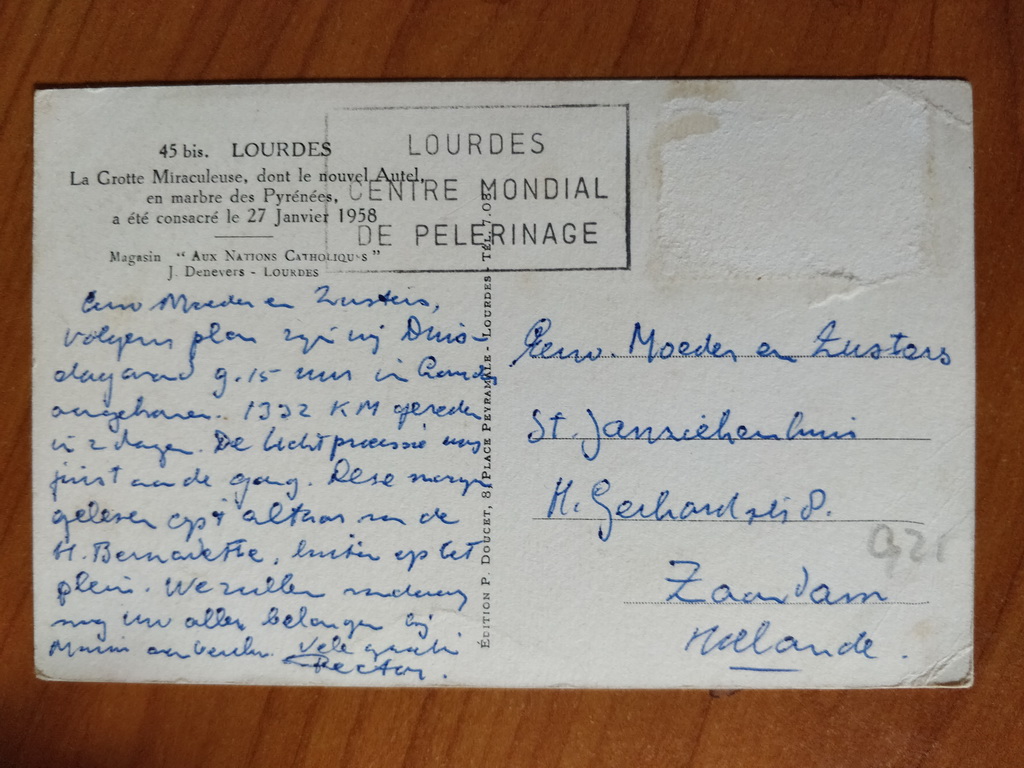 45 bis. LOURDES
La Grotte Miraculeuse, dont le nouvel Autel,
en marbre des Pyrénées,
a été consacré le 27 Janvier 1958
Magasin "AUX NATIONS CATHOLIQUES"
J. DENEVERS - LOURDES
LOURDES
CENTRE MONDIAL
DE PELERINAGE
ÉDITION P. DOUCET, 8, PLACE PEYRAMALE - LOURDES - TÉL. 7.03
Eerw Moeder en Zusters,
volgens plan zijn wij Dins-
dagavond 9.15 uur in Lourdes
aangekomen. 1332 KM gereden
in 2 dagen. De lichtprocessie was
juist aan de gang. Deze morgen
gelezen op 't altaar van de
H. Bernadette, buiten op het
plein. We zullen vandaag
nog uw aller belangen bij
Maria aanbevelen. Vele
Rector.
Eerw. Moeder en Zusters
St. Jansziekenhuis
H. Gerhardstr 8.
Zaandam
Hollande.